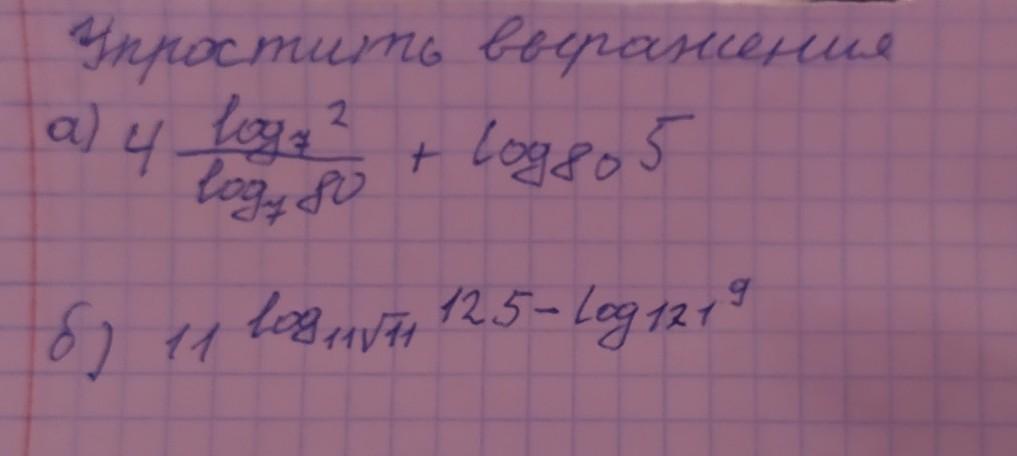 Упростить выражения
а) 4 log₇2 / log₇80 + log₈₀5
б) 11^(log_(11√11) 125 - log₁₂₁9)